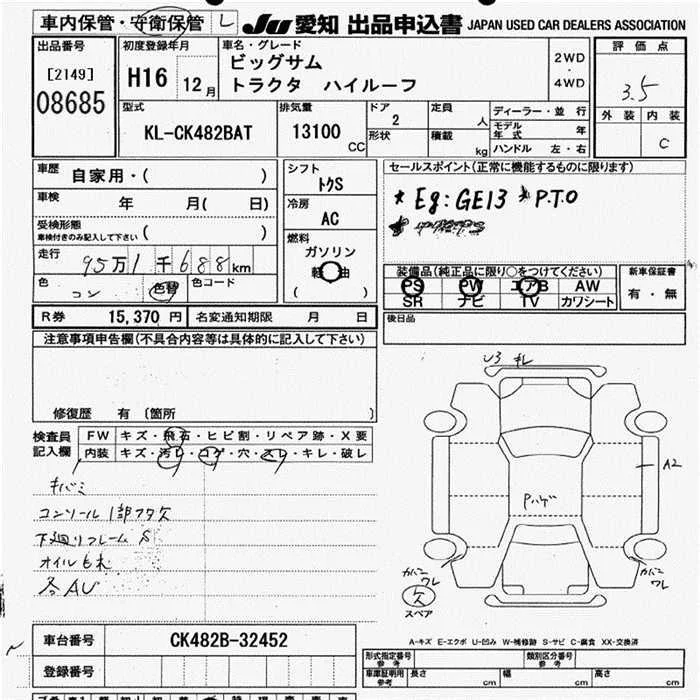 車内保管・安衛保管 L JU 愛知 出品申込書 JAPAN USED CAR DEALERS ASSOCIATION
出品番号 初度登録年月 車名・グレード 評価点
[2149] 08685 H16 12月 ビッグサム 2WD・4WD 3.5
トラクタ ハイルーフ
外装 内装 C
型式 排気量 ドア 定員 ディーラー・並行
KL-CK482BAT 13100 CC 2 人 モデル年式 年
形状 積載 kg ハンドル 左・右
車歴 自家用・( ) シフト トクS セールスポイント(正常に機能するものに限ります)
車検 年 月( 日) 冷房 AC * Eg:GE13 * P.T.O
受検形態 車検付きのみ記入して下さい ( )
燃料 ガソリン 軽油 ( )
走行 95万1千688km
色 コン 色替 色コード
装備品(純正品に限り○をつけてください) 新車保証書
PS PW エアB AW 有・無
SR ナビ TV カワシート
R券 15,370円 名変通知期限 月 日 後日品
注意事項申告欄(不具合内容等は具体的に記入して下さい)
修復歴 有 〔箇所 〕
検査員記入欄 FW キズ・飛石・ヒビ割・リペア跡・X要
内装 キズ・汚レ・コゲ・穴・スレ・キレ・破レ
キバミ
コンソール1部フタ欠
下廻りフレームS
オイルもれ
各AU
U3 キレ
A2
Pハゲ
カバーワレ
カバーワレ
欠
スペア
A-キズ E-エクボ U-凹み W-補修跡 S-サビ C-腐食 XX-交換済
車台番号 CK482B-32452
登録番号
形式指定番号 参考 類別区分番号 参考
車庫証明用 参考 長さ cm 幅 cm 高さ cm